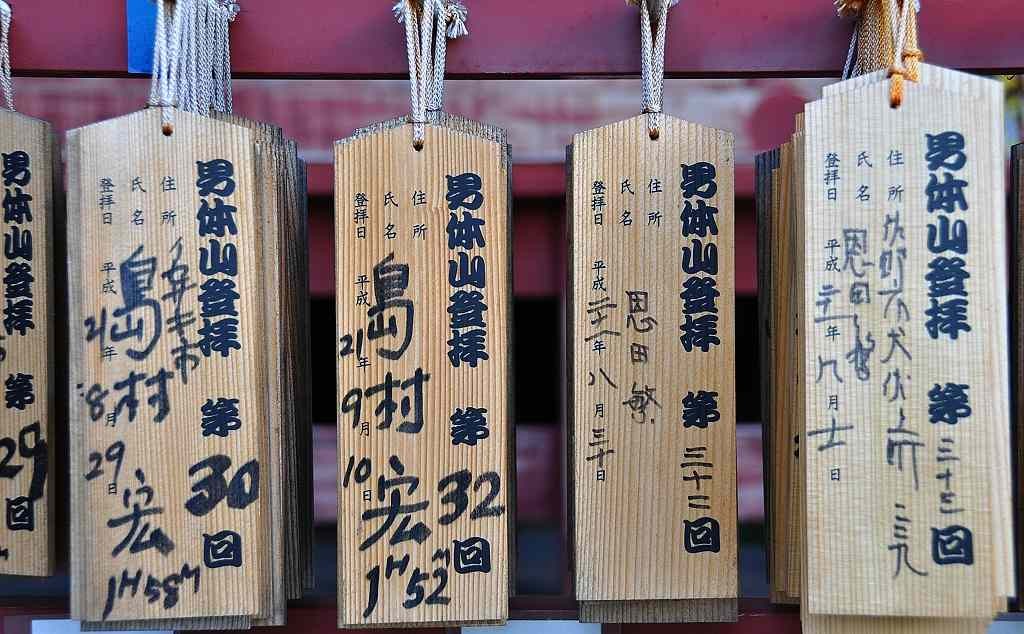 男体山登拝 第29回
男体山登拝 第30回
住所 市
氏名 島村宏
登拝日 平成21年8月29日
1H58M
男体山登拝 第32回
住所
氏名 島村宏
登拝日 平成21年9月10日
1H52M
男体山登拝 第三十二回
住所
氏名 恩田繁
登拝日 平成二十一年八月三十日
男体山登拝 第三十三回
住所 佐野市犬伏上町 二三九
氏名 恩田繁
登拝日 平成二十一年 月 日